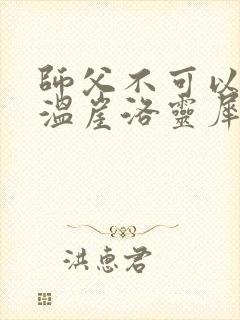 師父不可以
溫崖洛靈犀
洪惠君